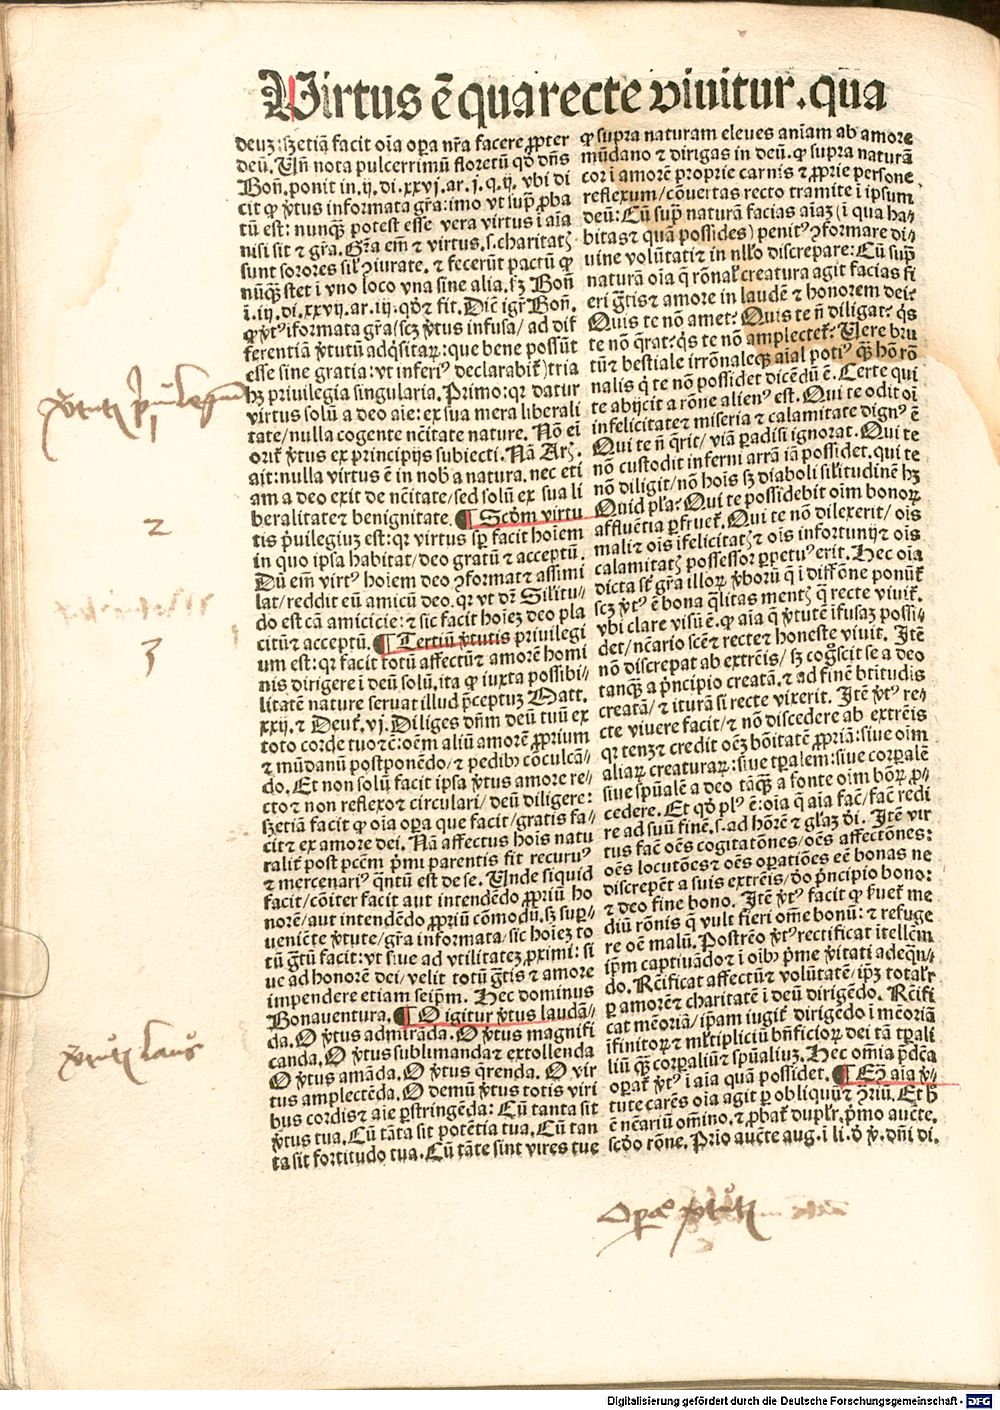 Virtus ē qua recte viuitur. qua
deuꝫ: sꝫ etiā facit oīa oꝑa nr̄a facere ꝓpter
deū. Un̄ nota pulcerrimū floretū qd̄ dn̄s
Bon̄. ponit in .ij. di. xxvj. ar. j. q. ij. vbi di
cit ꝙ v̄tus informata gr̄a: imo vt supͣ ꝓba
tū est: nunqͣꝫ potest esse vera virtus ī aīa
nisi sit ⁊ gr̄a. Gr̄a em̄ ⁊ virtus .s. charitatꝭ
sunt sorores sil̓ ꝯiurate. ⁊ fecerūt pactū ꝙ
nūqͣꝫ stet ī vno loco vna sine alia. ẜꝫ Bon̄
ī. iij. di. xxvij. ar. iij. qō ⁊ fit. Dic̄ igr̄ Bon̄.
ꝙ v̄tꝰ īformata gr̄a (scꝫ v̄tus infusa/ ad dif
ferentiā v̄tutū adq̄sitaꝝ: que bene possūt
esse sine gratia: vt inferiꝰ declarabit̄) tria
hꝫ priuilegia singularia. Primo: qꝛ datur
virtus solū a deo aīe: ex sua mera liberali
tate/ nulla cogente nc̄itate nature. Nō eī
orit̄ v̄tus ex principijs subiecti. Nā Arꝭ.
ait: nulla virtus ē in nob̄ a natura. nec eti
am a deo exit de nc̄itate/ sed solū ex sua li
beralitate ⁊ benignitate. ¶ Scd̄m virtu
tis p̄uilegiuꝫ est: qꝛ virtus sp̄ facit hoīem
in quo ipsa habitat/ deo gratū ⁊ acceptū.
Dū em̄ virtꝰ hoīem deo ꝯformat ⁊ assimi
lat/ reddit eū amicū deo. qꝛ vt dr̄ Sil̓itu-
do est cā amicicie: ⁊ sic facit hoīeꝫ deo pla
citū ⁊ acceptū. ¶ Tertiū v̄tutis priuilegi
um est: qꝛ facit totū affectū ⁊ amorē homi
nis dirigere ī deū solū. ita ꝙ iuxta possibi-
litatē nature seruat illud p̄ceptuꝫ Matt.
xxij. ⁊ Deut̄. vj. Diliges dn̄m deū tuū ex
toto corde tuo ⁊ c̄: oēm aliū amorē ꝓprium
⁊ mūdanū postponēdo/ ⁊ pedibꝰ cōculcā-
do. Et non solū facit ipsa v̄tus amore re-
cto ⁊ non reflexo ⁊ circulari/ deū diligere:
sꝫ etiā facit ꝙ oīa oꝑa que facit/ gratis fa-
cit ⁊ ex amore dei. Nā affectus hoīs natu
ralit̄ post pcc̄m p̄mi parentis fit recuruꝰ
⁊ mercenariꝰ qͣntū est de se. Unde siquid
facit/ cōiter facit aut intendēdo ꝓpriū ho
norē/ aut intendēdo ꝓpriū cōmodū. sꝫ suꝑ-
ueniēte v̄tute/ gr̄a informata/ sic hoīeꝫ to
tū gͣtū facit: vt siue ad vtilitateꝫ ꝓximi: si
ue ad honorē dei/ velit totū gͣtis ⁊ amore
impendere etiam seip̄m. Hec dominus
Bonauentura. ¶ O igitur v̄tus laudā-
da. O v̄tus admirāda. O v̄tus magnifi
canda. O v̄tus sublimanda ⁊ extollenda
O v̄tus amāda. O v̄tus q̄renda. O vir
tus amplectēda. O demū v̄tus totis viri
bus cordis ⁊ aīe ꝑstringēda: Cū tanta sit
v̄tus tua. Cū tāta sit potētia tua. Cū tan
ta sit fortitudo tua. Cū tāte sint vires tue
ꝙ supra naturam eleues anīam ab amore
mūdano ⁊ dirigas in deū. ꝙ supra naturā
cor ī amorē proprie carnis ⁊ ꝓprie persone
reflexum/ cōuertas recto tramite ī ipsum
deū: Cū supͣ naturā facias aīaꝫ (ī qua ha-
bitas ⁊ quā possides) penitꝰ ꝯformare di-
uine volūtati ⁊ in nllo discrepare: Cū supͣ
naturā oīa q̄ rōnal̓ creatura agit facias fi
eri gͣtis ⁊ amore in laudē ⁊ honorem dei:
Quis te nō amet? Quis te n̄ diligat? qͥs
te nō q̄rat? qͥs te nō amplectet̄? Vere bru
tū ⁊ bestiale irrōnaleqꝫ aīal potiꝰ qͣꝫ hō rō
nalis qͥ te nō possidet dicēdū ē. Certe qui
te abijcit a rōne alienꝰ est. Qui te odit oī
infelicitate ⁊ miseria ⁊ calamitate dignꝰ ē
Qui te n̄ q̄rit/ viā paradisi ignorat. Qui te
nō custodit inferni arrā iā possidet. qui te
nō diligit/ nō hoīs sꝫ diaboli sil̓itudinē hꝫ
Quid pl̓a? Qui te possidebit oīm bonoꝝ
affluētia ꝑfruet̄. Qui te nō dilexerit/ oīs
mali ⁊ oīs īfelicitatꝭ ⁊ oīs infortunij ⁊ oīs
calamitatꝭ possessor ꝑpetuꝰ erit. Hec oīa
dicta st̄ gr̄a illoꝝ v̄borū q̄ ī diff̄one ponūt̄
scꝫ v̄tꝰ ē bona qͣlitas mentꝭ q̄ recte viuit̄.
vbi clare visū ē. ꝙ aīa q̄ v̄tutē īfusaꝫ possi-
det/ nc̄ario scē ⁊ recte ⁊ honeste viuit. Itē
nō discrepat ab extrēis/ sꝫ cogͦscit se a deo
tanqͣꝫ a p̄ncipio creatā. ⁊ ad finē btītudis
creatā/ ⁊ iturā si recte vixerit. Itē v̄tꝰ re-
cte viuere facit/ ⁊ nō discedere ab extrēis
qꝛ tenꝫ ⁊ credit oēꝫ bōitatē ꝓpriā: siue oīm
aliaꝝ creaturaꝝ: siue tꝑalem: siue corꝑalē
siue spūalē a deo tāqͣꝫ a fonte oīm bōꝝ ꝓ-
cedere. Et qd̄ plꝰ ē: oīa q̄ aīa fac̄/ fac̄ redi
re ad suū finē .s. ad hōrē ⁊ gl̓aꝫ dei. Itē vir
tus fac̄ oēs cogitatōnes/ oēs affectōnes:
oēs locutōes ⁊ oēs oꝑatiōes eē bonas ne
discrepēt a suis extrēis/ d̄o p̄ncipio bono:
⁊ deo fine bono. Itē v̄tꝰ facit ꝙ ẜuet̄ me
diū rōnis q̄ vult fieri om̄e bonū: ⁊ refuge
re oē malū. Postrēo v̄tꝰ rectificat ītellc̄m
ip̄m captiuādo ⁊ ī oibꝰ p̄me v̄itati adeqͣn-
do. Rc̄ificat affectū ⁊ volūtatē/ ip̄ꝫ total̓r
ꝑ amorē ⁊ charitatē ī deū dirigēdo. Rc̄ifi
cat mēoriā/ ip̄am iugit̄ dirigēdo ī mēoriā
īfinitoꝝ ⁊ ml̓tipliciū bn̄ficioꝝ dei tā tꝑali
liū qͣꝫ corꝑaliū ⁊ spūaliuꝫ. Hec om̄ia p̄dc̄a
oꝑat̄ v̄tꝰ ī aīa quā possidet. ¶ Em̄ aīa v̄-
tute carēs oīa agit ꝑ obliquū ⁊ ꝯriū. Et h̄
ē nc̄ariū om̄ino. ⁊ ꝓbat̄ dupl̓r. p̄mo auc̄te.
scd̄o rōne. Prīo auc̄te aug. ī li. d̄ v̄. dn̄i di.
2
3
v̄tutꝭ laus
Opa v̄tutꝭ
Digitalisierung gefördert durch die Deutsche Forschungsgemeinschaft - DFG